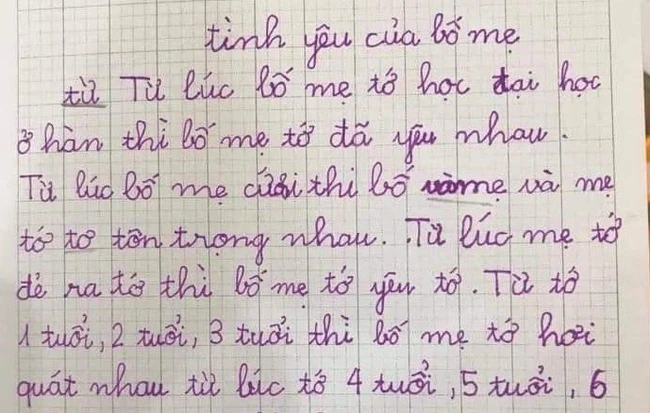 tình yêu của bố mẹ
từ Từ lúc bố mẹ tớ học đại học
ở hàn thì bố mẹ tớ đã yêu nhau.
Từ lúc bố mẹ cưới thì bố và mẹ và mẹ
tớ tơ tôn trọng nhau. Từ lúc mẹ tớ
đẻ ra tớ thì bố mẹ tớ yêu tớ. Từ tớ
1 tuổi, 2 tuổi, 3 tuổi thì bố mẹ tớ hơi
quát nhau từ lúc tớ 4 tuổi, 5 tuổi, 6